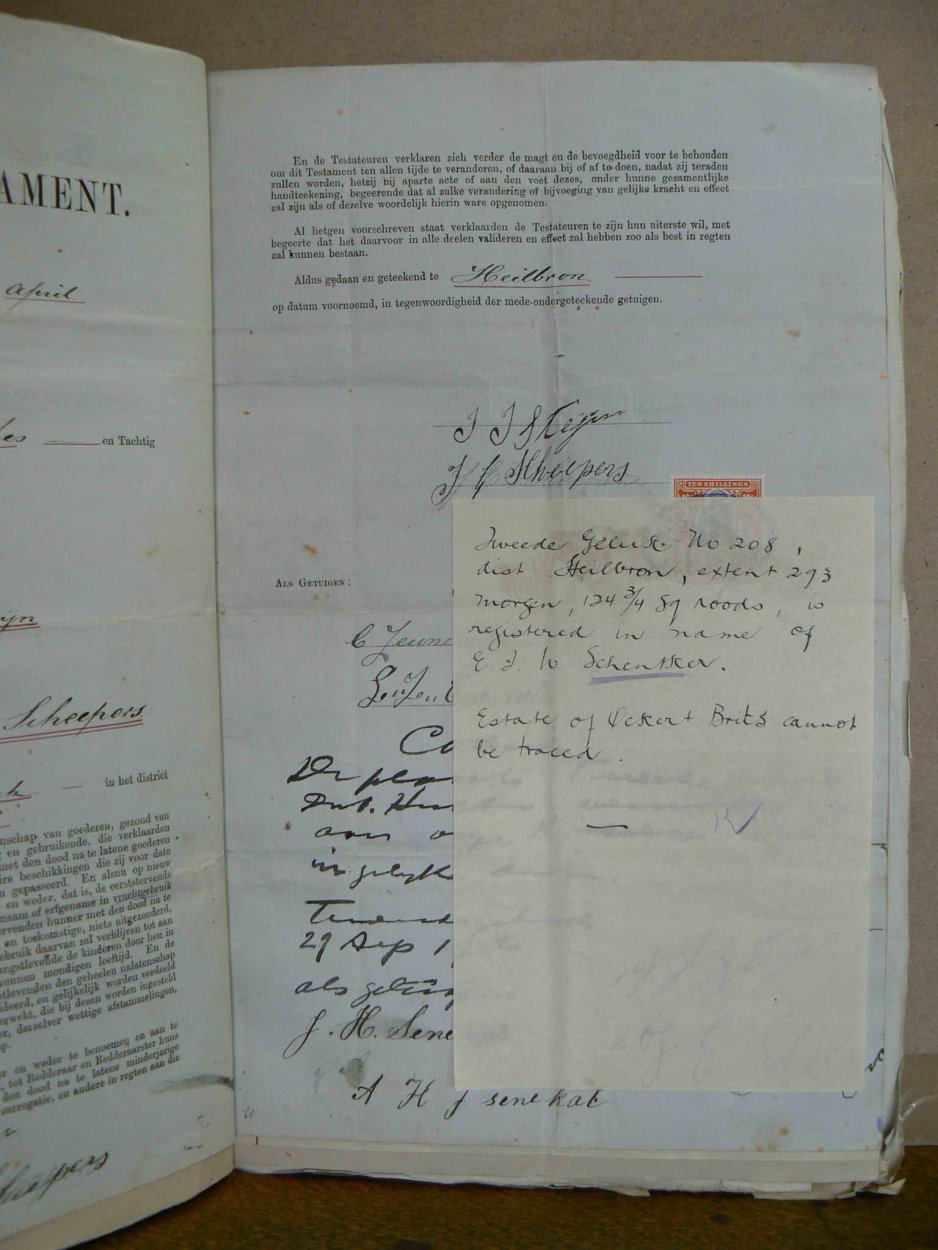 AMENT.
April
en Tachtig
Scheepers
in het district
nschap van goederen, gezond van
en gebruikende, die verklaarden
met den dood na te latene goederen
ire beschikkingen die zij voor dato
n gepasseerd. En alsnu op nieuw
en weder, dat is, de eerststervende
naam of erfgename in vruchtgebruik
ervenden hunner met den dood na te
en toekomstige, niets uitgezonderd,
ebruik daarvan zal verblijven tot aan
angstlevende de kinderen door hen in
unnen mondigen leeftijd. En de
stlevenden den geheelen nalatenschap
ideerd, en gelijkelijk worden verdeeld
erwekt, die bij dezen worden ingesteld
r, deszelver wettige afstammelingen,
op.
er en weder te benoemen en aan te
tot Redderaar en Redderaarster huns
den dood na te latene minderjarige
surrogatie, en andere in regten aan die
Scheepers
En de Testateuren verklaren zich verder de magt en de bevoegdheid voor te behouden
om dit Testament ten allen tijde te veranderen, of daaraan bij of af te doen, nadat zij teraden
zullen worden, hetzij bij aparte acte of aan den voet dezes, onder hunne gezamentlijke
handteekening, begeerende dat al zulke verandering of bijvoeging van gelijke kracht en effect
zal zijn als of dezelve woordelijk hierin ware opgenomen.
Al hetgen voorschreven staat verklaarden de Testateuren te zijn hun uiterste wil, met
begeerte dat het daarvoor in alle deelen valideren en effect zal hebben zoo als best in regten
zal kunnen bestaan.
Aldus gedaan en geteekend te Heilbron
op datum voornoemd, in tegenwoordigheid der mede-ondergeteekende getuigen.
J J Steijn
J J Scheepers
TEN SHILLINGS
Als Getuigen:
Tweede Geluk No 208,
dist Heilbron, extent 293
morgen, 124 3/4 sq roods, is
registered in name of
E J W Schentker.
Estate of Ockert Brits cannot
be traced.
29 Sep 1
als getuig
J. H. Sene
A H J senekal